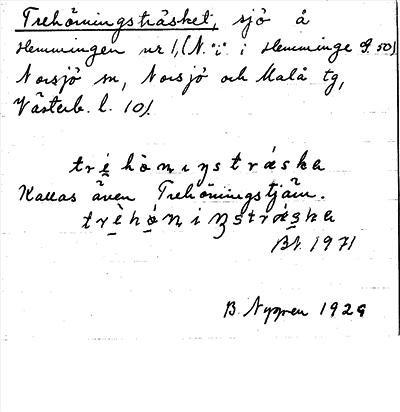 Trehörningsträsket, sjö å
Hemmingen nr 1, (N. "i" i Hemminge 9.50)
Norsjö sn, Norsjö och Malå tg,
Västerb. l. 10).
tré hònıŋstráska
Kallas även Trehörningstjärn.
trè hònıŋstráska
1971
B. Nygren 1929